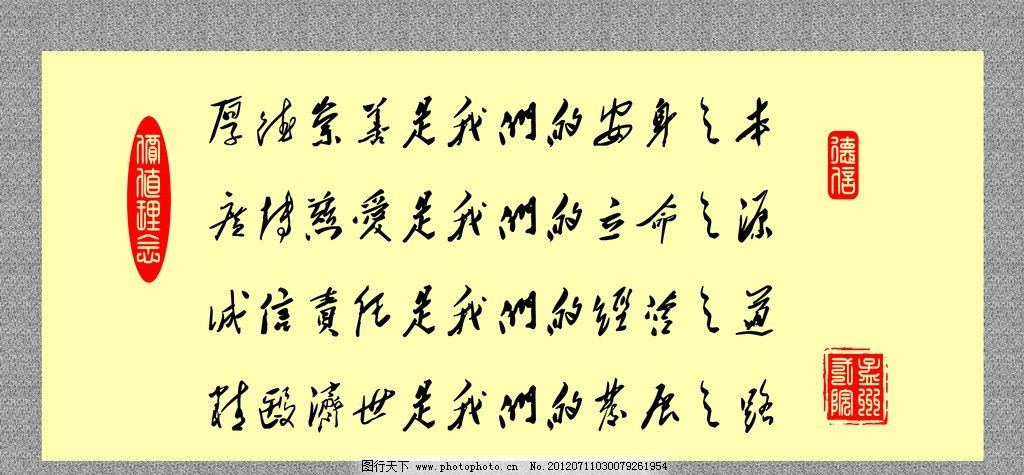 價值理念
厚德崇善是我們的安身之本
廣博慈愛是我們的立命之源
誠信責任是我們的經營之道
精醫濟世是我們的發展之路
德信
孟州
弍院
图行天下 www.photophoto.cn No.20120711030079261954